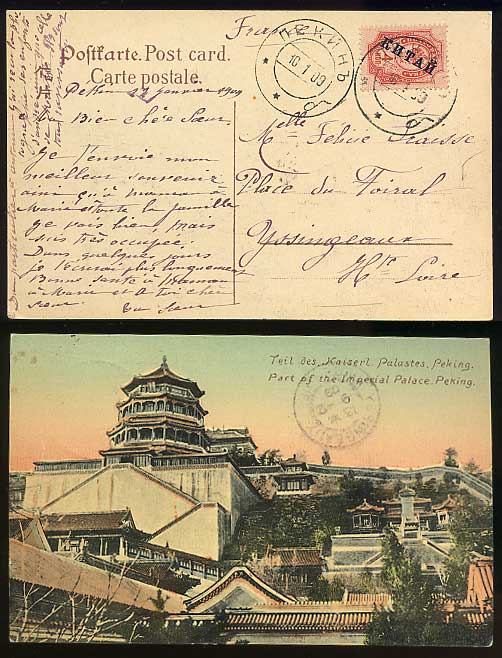 France
Postkarte. Post card.
Carte postale.
ПЕКИНЪ
10 1 09
КИТАЙ
Pekin 22 janvier 1909
Ma Bien chère Sœur
Je t'envoie mon
meilleur souvenir
ainsi qu'à maman à
Marie et toute la famille
je vais bien, mais
suis très occupée.
Dans quelques jours
je t'écrirai plus longuement
Bonne santé à Maman
à Marie et à toi chère
sœur
ta sœur
Melle Félicie
Place du Foiral
Yssingeaux
Hte Loire
Teil des Kaiserl. Palastes, Peking.
Part of the Imperial Palace. Peking.